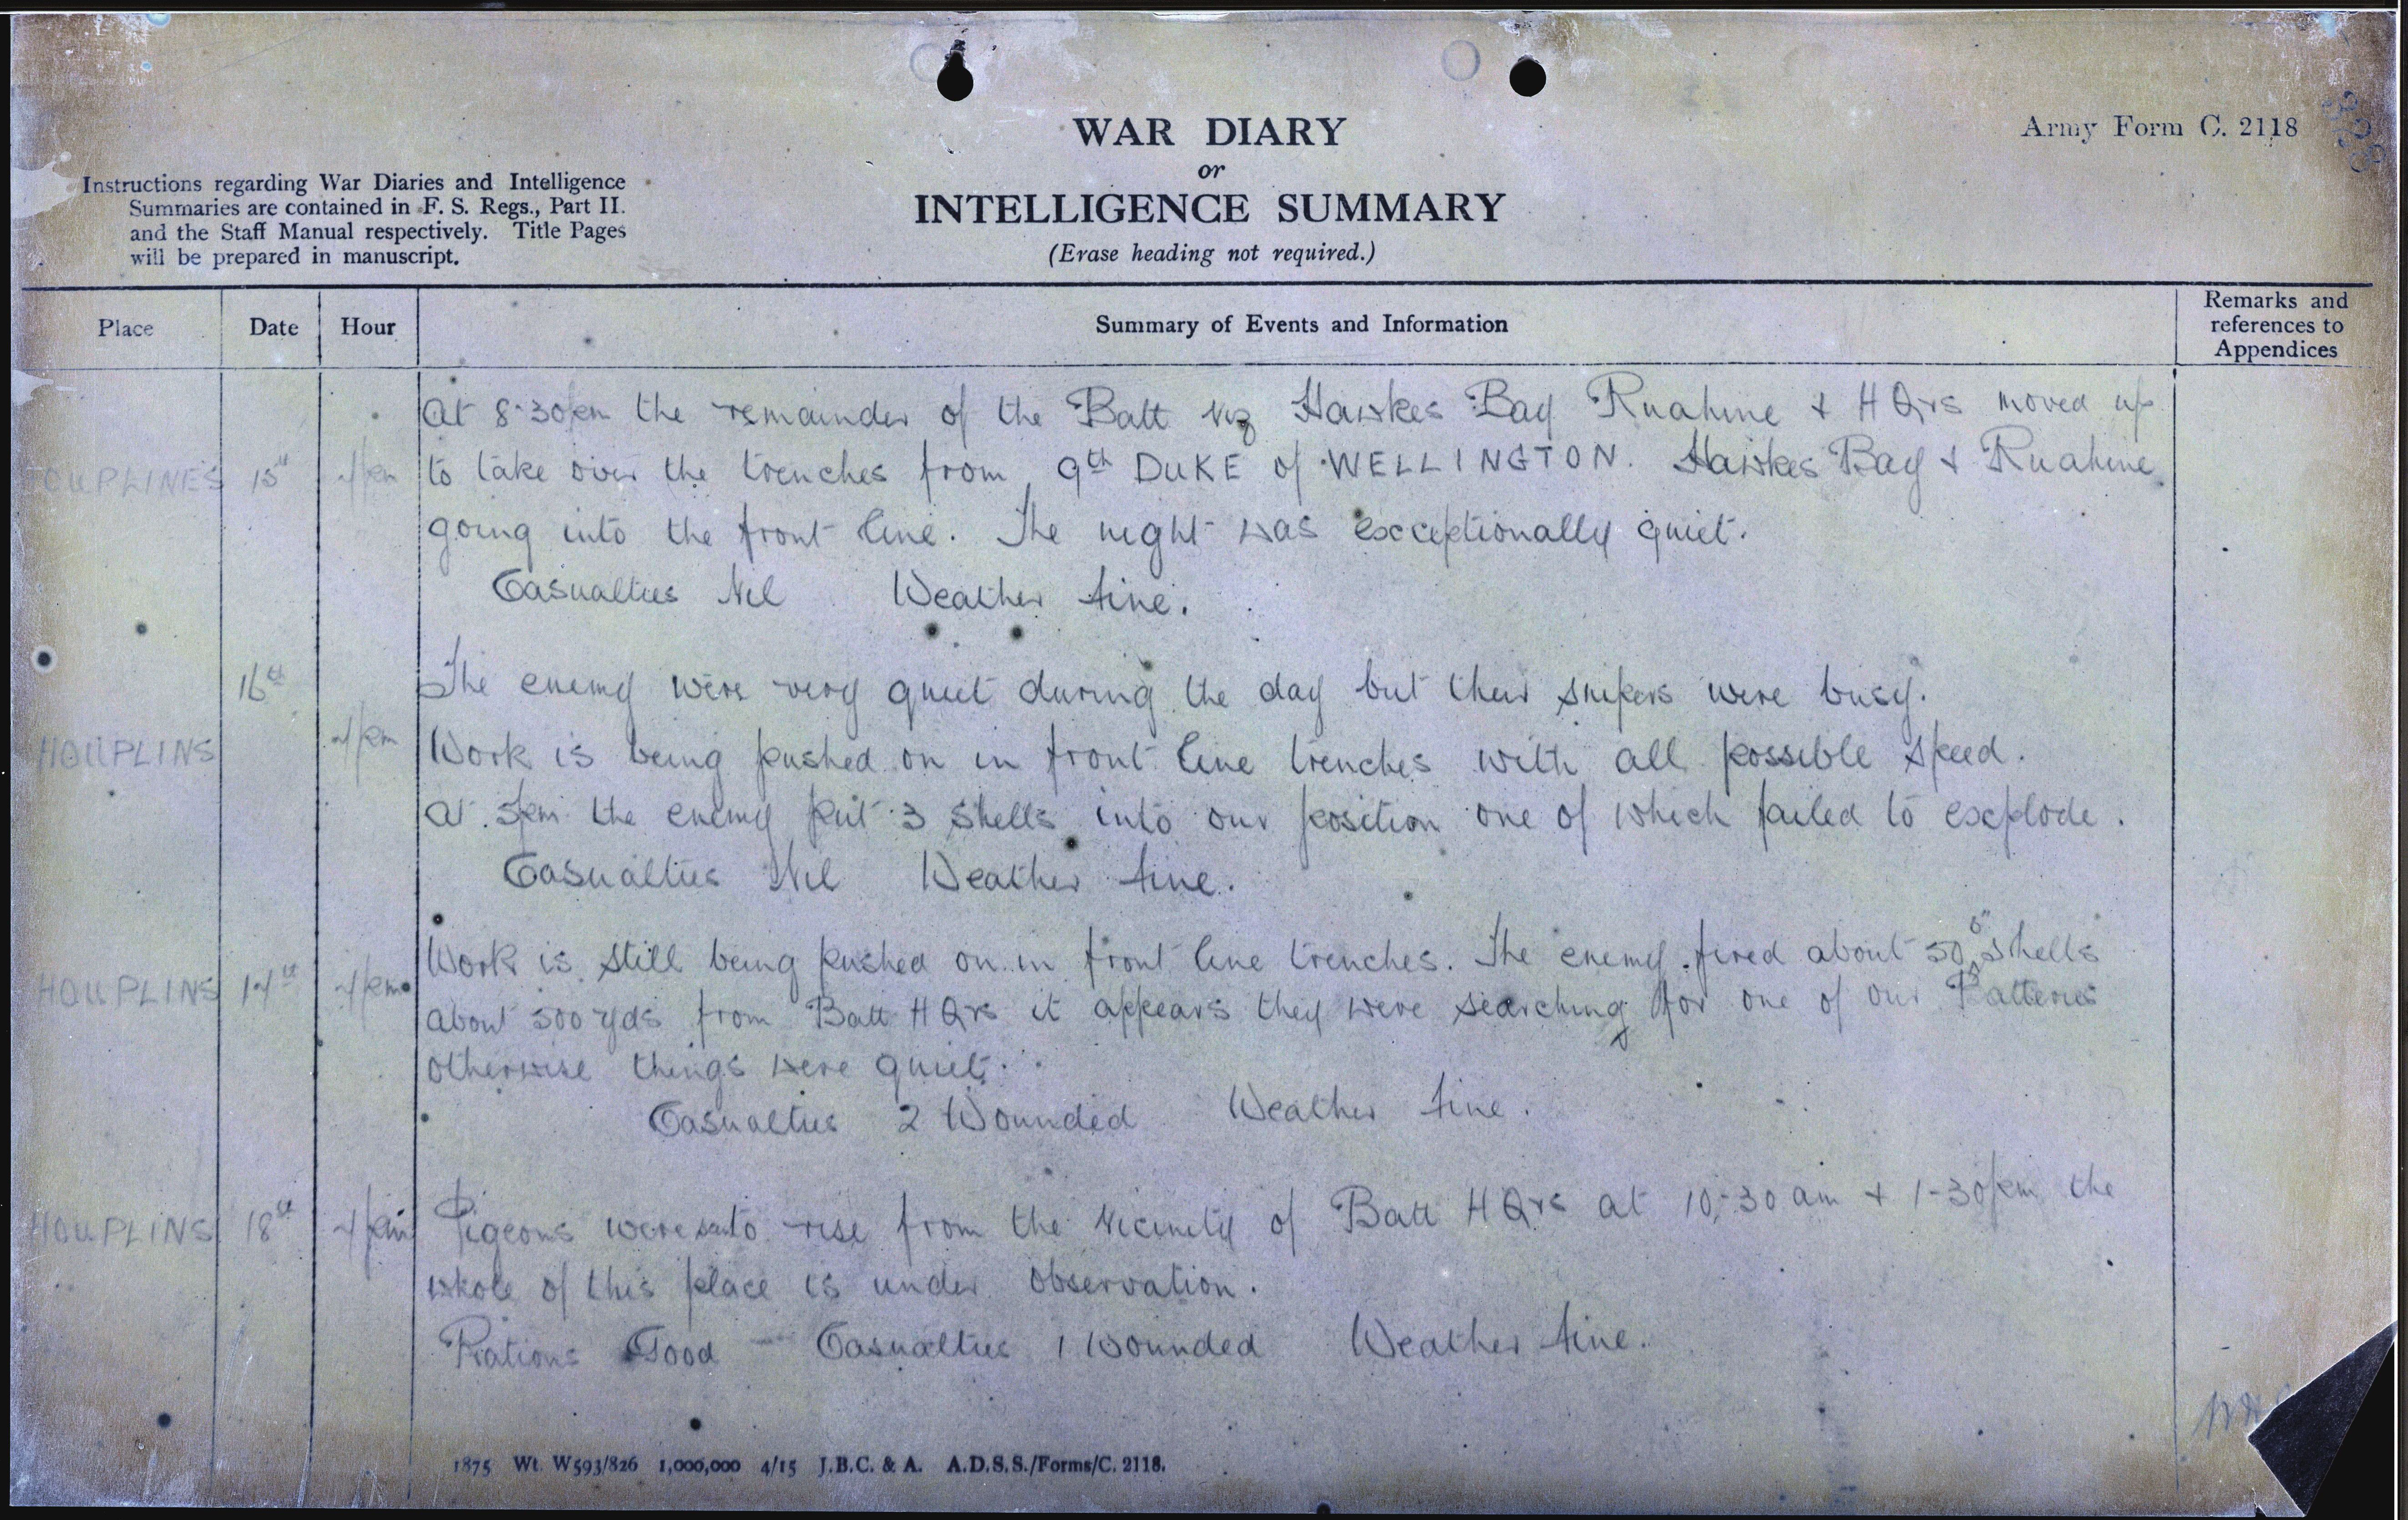 WAR DIARY
or
INTELLIGENCE SUMMARY
(Erase heading not required.)
Army Form C. 2118
Instructions regarding War Diaries and Intelligence
Summaries are contained in F. S. Regs., Part II.
and the Staff Manual respectively. Title Pages
will be prepared in manuscript.
Place Date Hour Summary of Events and Information Remarks and references to Appendices
At 8-30pm the remainder of the Batt viz Hawkes Bay Ruahine & H Qrs moved up
HOUPLINES 15th 4pm to take over the trenches from 9th DUKE of WELLINGTON. Hawkes Bay & Ruahine
going into the front line. The night was exceptionally quiet.
Casualties Nil Weather fine.
16th The enemy were very quiet during the day but their snipers were busy.
HOUPLINS 4pm Work is being pushed on in front line trenches with all possible speed.
At 5pm the enemy put 3 shells into our position one of which failed to explode.
Casualties Nil Weather fine.
Work is still being pushed on in front line trenches. The enemy fired about 50 5" shells
HOUPLINS 17th 4pm about 500 yds from Batt H Qrs it appears they were searching for one of our Batteries
otherwise things were quiet.
Casualties 2 Wounded Weather fine.
HOUPLINS 18th 4pm Pigeons were to rise from the vicinity of Batt H Qrs at 10-30 am & 1-30pm the
whole of this place is under observation.
Rations Good - Casualties 1 Wounded Weather fine.
1875 Wt. W593/826 1,000,000 4/15 J.B.C. & A. A.D.S.S./Forms/C. 2118.